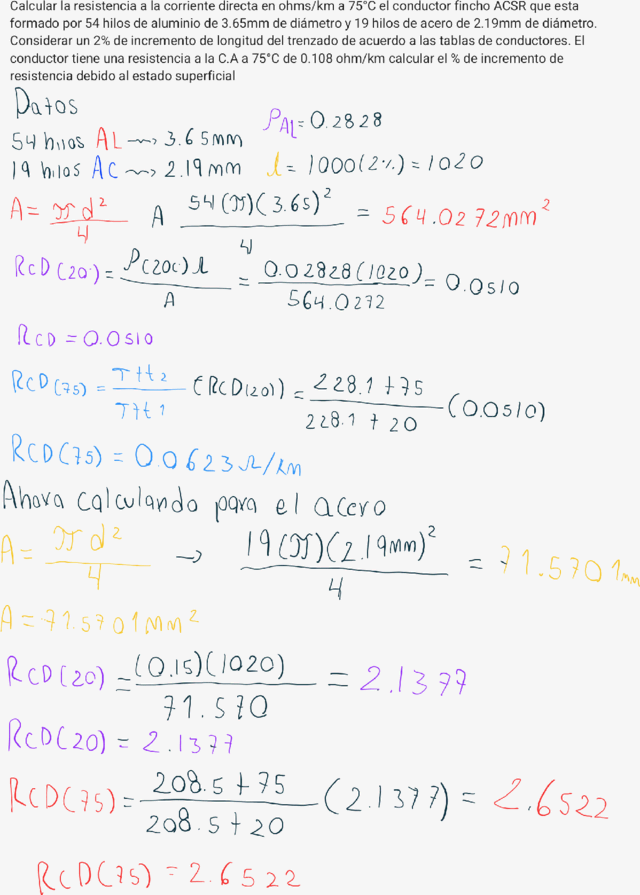 Calcular la resistencia a la corriente directa en ohms/km a 75°C el conductor fincho ACSR que esta
formado por 54 hilos de aluminio de 3.65mm de diámetro y 19 hilos de acero de 2.19mm de diámetro.
Considerar un 2% de incremento de longitud del trenzado de acuerdo a las tablas de conductores. El
conductor tiene una resistencia a la C.A a 75°C de 0.108 ohm/km calcular el % de incremento de
resistencia debido al estado superficial
Datos
ρAL=0.2828
54 hilos AL ~> 3.65mm
19 hilos AC ~> 2.19 mm
l = 1000(2%) = 1020
A = πd²/4 A 54(π)(3.65)²/4 = 564.0272mm²
RCD(20°) = ρ(20C) l/A = 0.02828(1020)/564.0272 = 0.0510
RCD = 0.0510
RCD(75) = T+t2/T+t1 (RCD(20)) = 228.1 + 75/228.1 + 20 (0.0510)
RCD(75) = 0.0623Ω/km
Ahora calculando para el acero
A = πd²/4 → 19(π)(2.19mm)²/4 = 71.5701mm
A = 71.5701mm²
RCD(20) = (0.15)(1020)/71.570 = 2.1377
RCD(20) = 2.1377
RCD(75) = 208.5 + 75/208.5 + 20 (2.1377) = 2.6522
RCD(75) = 2.6522